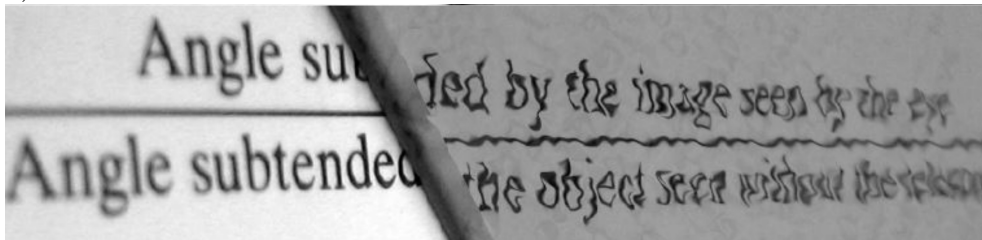 Angle subtended by the image seen by the eye
Angle subtended the object seen without the telescope